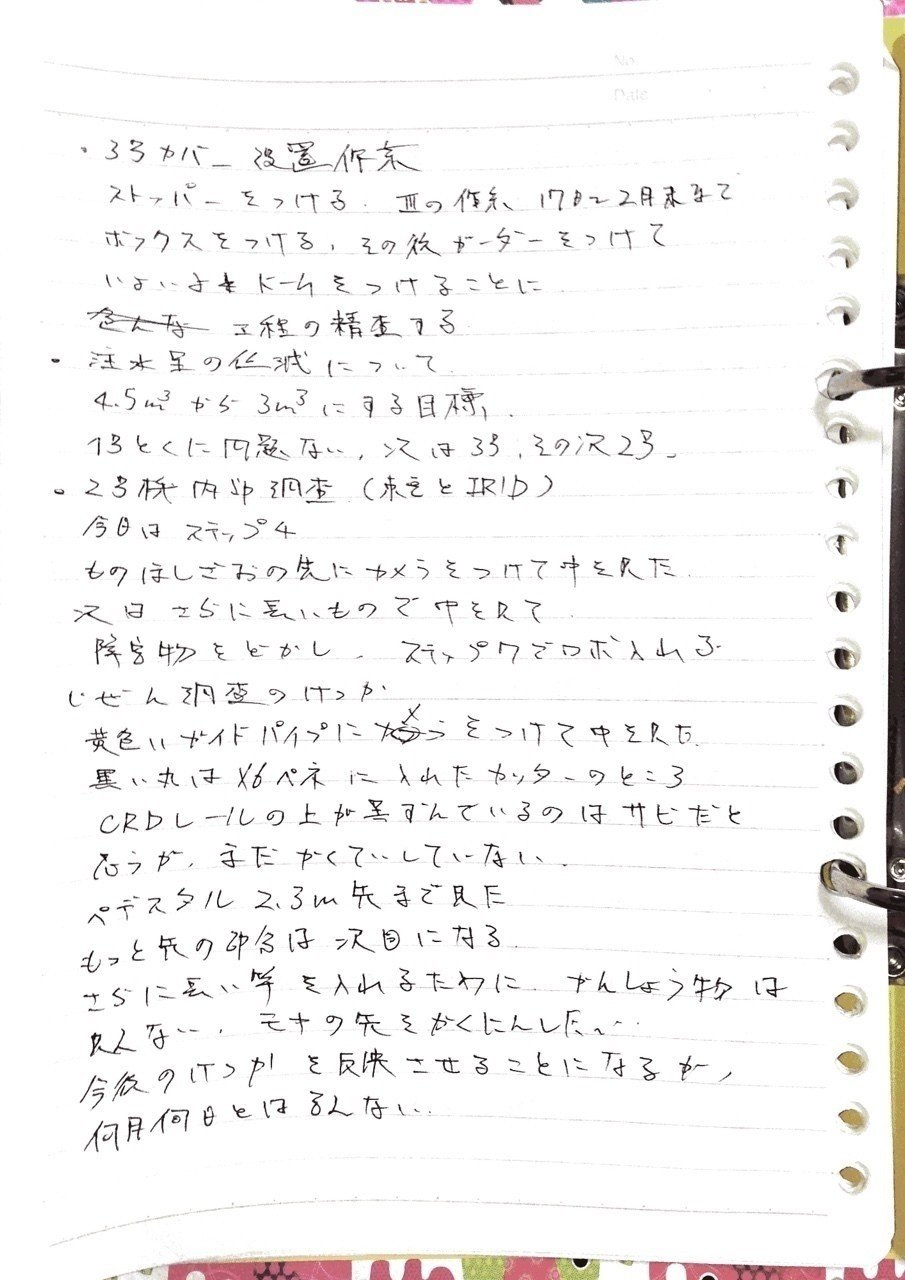 No.
Date
・3号カバー設置作業
ストッパーをつける. Ⅲの作業、17日〜2月末まで
ボックスをつける, その後ガーダーをつけて
いよいよ ドームをつけることに
工程の精査する
・注水量の低減について
4.5m³から3m³にする目標,
1号とくに問題ない, 次は3号, その次2号.
・2号機内部調査 (東電とIRID)
今日は ステップ4
ものほしざおの先にカメラをつけて中を見た.
次回 さらに長いもので中を見て.
障害物をどかし. ステップ7でロボ入れる
じぜん調査のけっか
黄色いガイドパイプにカメラをつけて中を見た.
黒い丸はX6ペネに入れたカッターのところ
CRDレールの上が黒ずんでいるのはサビだと
思うが, まだかくていしていない.
ペデスタル 2.3m先まで見た
もっと先の部分は次回になる.
さらに長い竿を入れるために. かんしょう物は
見えない. の先をかくにんしたい..
今後のけっかを反映させることになるが,
何月何日とは言えない..